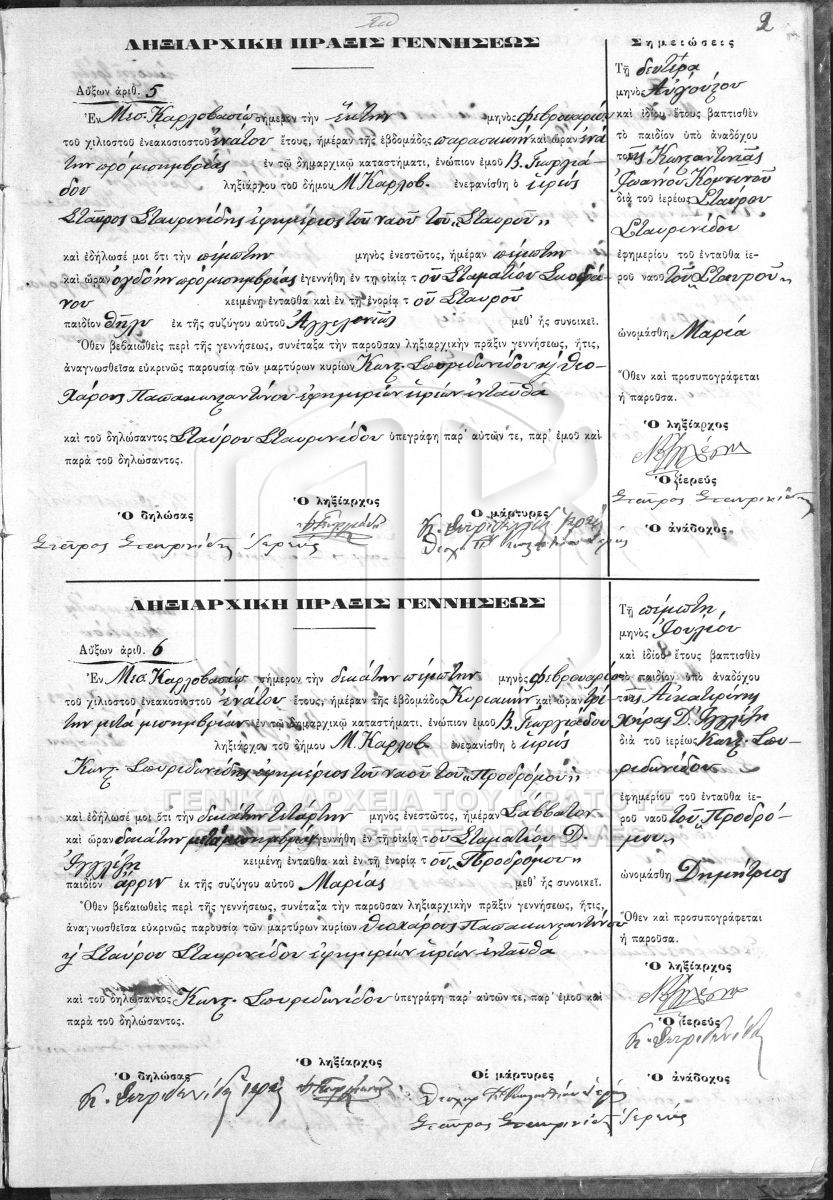 2
ΛΗΞΙΑΡΧΙΚΗ ΠΡΑΞΙΣ ΓΕΝΝΗΣΕΩΣ
Αὔξων ἀριθ. 5
Ἐν Μεσ. Καρλοβασίῳ σήμερον τὴν ἕκτην μηνὸς Φεβρουαρίου
τοῦ χιλιοστοῦ ἐνεακοσιοστοῦ ἐνάτου ἔτους, ἡμέραν τῆς ἑβδομάδος παρασκευὴν καὶ ὥραν ἐνά
την πρὸ μεσημβρίας ἐν τῷ δημαρχικῷ καταστήματι, ἐνώπιον ἐμοῦ Β. Γεωργιά-
δου ληξιάρχου τοῦ δήμου Μ. Καρλοβ. ἐνεφανίσθη ὁ ἱερεὺς
Σταῦρος Σταυρινίδης ἐφημέριος τοῦ ναοῦ τοῦ „Σταυροῦ„
καὶ ἐδήλωσέ μοι ὅτι τὴν πέμπτην μηνὸς ἐνεστῶτος, ἡμέραν πέμπτην
καὶ ὥραν ὀγδόην πρὸ μεσημβρίας ἐγεννήθη ἐν τῇ οἰκίᾳ τοῦ Σταματίου
νου κειμένῃ ἐνταῦθα καὶ ἐν τῇ ἐνορίᾳ τοῦ Σταυροῦ
παιδίον θῆλυ ἐκ τῆς συζύγου αὐτοῦ μεθ' ἧς συνοικεῖ.
Ὅθεν βεβαιωθεὶς περὶ τῆς γεννήσεως, συνέταξα τὴν παροῦσαν ληξιαρχικὴν πρᾶξιν γεννήσεως, ἥτις,
ἀναγνωσθεῖσα εὐκρινῶς παρουσίᾳ τῶν μαρτύρων κυρίων Κωνστ. Σπυριδωνίδου κ̀ Θεο
χάρους Παπακωνσταντίνου ἐφημερίων ἱερέων ἐνταῦθα
καὶ τοῦ δηλώσαντος Σταύρου Σταυρινίδου ὑπεγράφη παρ' αὐτῶν τε, παρ' ἐμοῦ καὶ
παρὰ τοῦ δηλώσαντος.
Ὁ δηλώσας
Ὁ ληξίαρχος
Οἱ μάρτυρες
Σταῦρος Σταυρινίδης Ἱερεύς
Β Γεωργιάδης
Κ. Σπυριδωνίδης ἱερεύς
Σημειώσεις
Τῇ δευτέρᾳ
μηνὸς Αὐγούστου
καὶ ἰδίου ἔτους βαπτισθὲν
τὸ παιδίον ὑπὸ ἀναδόχου
τῆς Κωνσταντινιᾶς
Ἰωάννου Κομνηνοῦ
διὰ τοῦ ἱερέως Σταύρου
Σταυρινίδου
ἐφημερίου τοῦ ἐνταῦθα ἱε-
ροῦ ναοῦ τοῦ „Σταυροῦ„
ὠνομάσθη Μαρία
Ὅθεν καὶ προσυπογράφεται
ἡ παροῦσα.
Ὁ ληξίαρχος
Ὁ ἱερεύς
Σταῦρος Σταυρινίδης
Ὁ ἀνάδοχος
ΛΗΞΙΑΡΧΙΚΗ ΠΡΑΞΙΣ ΓΕΝΝΗΣΕΩΣ
Αὔξων ἀριθ. 6
Ἐν Μεσ. Καρλοβασίῳ σήμερον τὴν δεκάτην πέμπτην μηνὸς Φεβρουαρίου
τοῦ χιλιοστοῦ ἐνεακοσιοστοῦ ἐνάτου ἔτους, ἡμέραν τῆς ἑβδομάδος Κυριακὴν καὶ ὥραν τρί-
την μετὰ μεσημβρίαν ἐν τῷ δημαρχικῷ καταστήματι, ἐνώπιον ἐμοῦ Β. Γεωργιάδου
ληξιάρχου τοῦ δήμου Μ. Καρλοβ. ἐνεφανίσθη ὁ ἱερεὺς
Κωνστ. Σπυριδωνίδης ἐφημέριος τοῦ ναοῦ τοῦ „Προδρόμου„
καὶ ἐδήλωσέ μοι ὅτι τὴν δεκάτην τετάρτην μηνὸς ἐνεστῶτος, ἡμέραν Σάββατον
καὶ ὥραν δεκάτην ἐγεννήθη ἐν τῇ οἰκίᾳ τοῦ Σταματίου Δ.
κειμένῃ ἐνταῦθα καὶ ἐν τῇ ἐνορίᾳ τοῦ „Προδρόμου„
παιδίον ἄρρεν ἐκ τῆς συζύγου αὐτοῦ Μαρίας μεθ' ἧς συνοικεῖ.
Ὅθεν βεβαιωθεὶς περὶ τῆς γεννήσεως, συνέταξα τὴν παροῦσαν ληξιαρχικὴν πρᾶξιν γεννήσεως, ἥτις,
ἀναγνωσθεῖσα εὐκρινῶς παρουσίᾳ τῶν μαρτύρων κυρίων Θεοχάρους Παπακωνσταντίνου
κ̀ Σταύρου Σταυρινίδου ἐφημερίων ἱερέων ἐνταῦθα
καὶ τοῦ δηλώσαντος Κωνστ. Σπυριδωνίδου ὑπεγράφη παρ' αὐτῶν τε, παρ' ἐμοῦ καὶ
παρὰ τοῦ δηλώσαντος.
Ὁ δηλώσας
Ὁ ληξίαρχος
Οἱ μάρτυρες
Κ. Σπυριδωνίδης ἱερεύς
Β Γεωργιάδης
Σταῦρος Σταυρινίδης Ἱερεύς
Τῇ πέμπτῃ
μηνὸς Ἰουλίου
καὶ ἰδίου ἔτους βαπτισθὲν
τὸ παιδίον ὑπὸ ἀναδόχου
τῆς Αἰκατερίνης
χήρας Δ.
διὰ τοῦ ἱερέως Κωνστ. Σπυ-
ριδωνίδου
ἐφημερίου τοῦ ἐνταῦθα ἱε-
ροῦ ναοῦ τοῦ „Προδρό-
μου„
ὠνομάσθη Δημήτριος
Ὅθεν καὶ προσυπογράφεται
ἡ παροῦσα.
Ὁ ληξίαρχος
Ὁ ἱερεύς
Κ. Σπυριδωνίδης
Ὁ ἀνάδοχος
ΓΕΝΙΚΑ ΑΡΧΕΙΑ ΤΟΥ ΚΡΑΤΟΥΣ
GENERAL STATE ARCHIVES